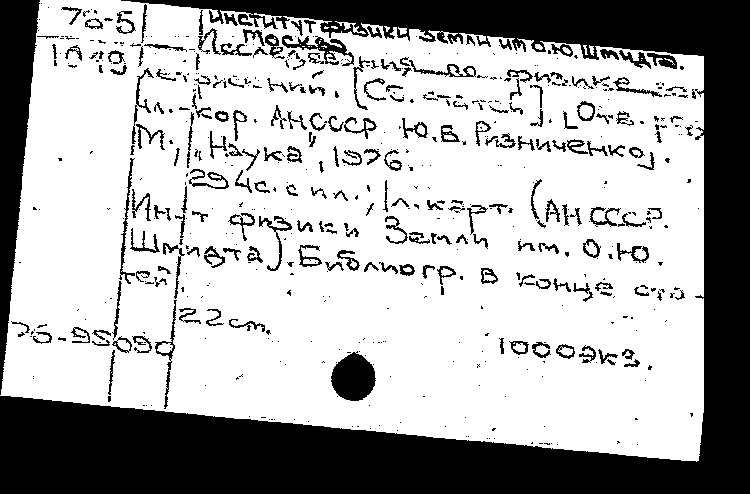 76-5
1049
Институт физики Земли им О.Ю. Шмидта.
Москва
Исследования по физике зем
летрясений. [Сб. статей]. [Отв. ред
чл.-кор. АН СССР Ю.В. Ризниченко].
М., „Наука", 1976.
294с. с ил.; 1л. карт. (АН СССР.
Ин-т физики Земли им. О.Ю.
Шмидта). Библиогр. в конце ста-
тей.
22 cm.
76-95090
1000экз.